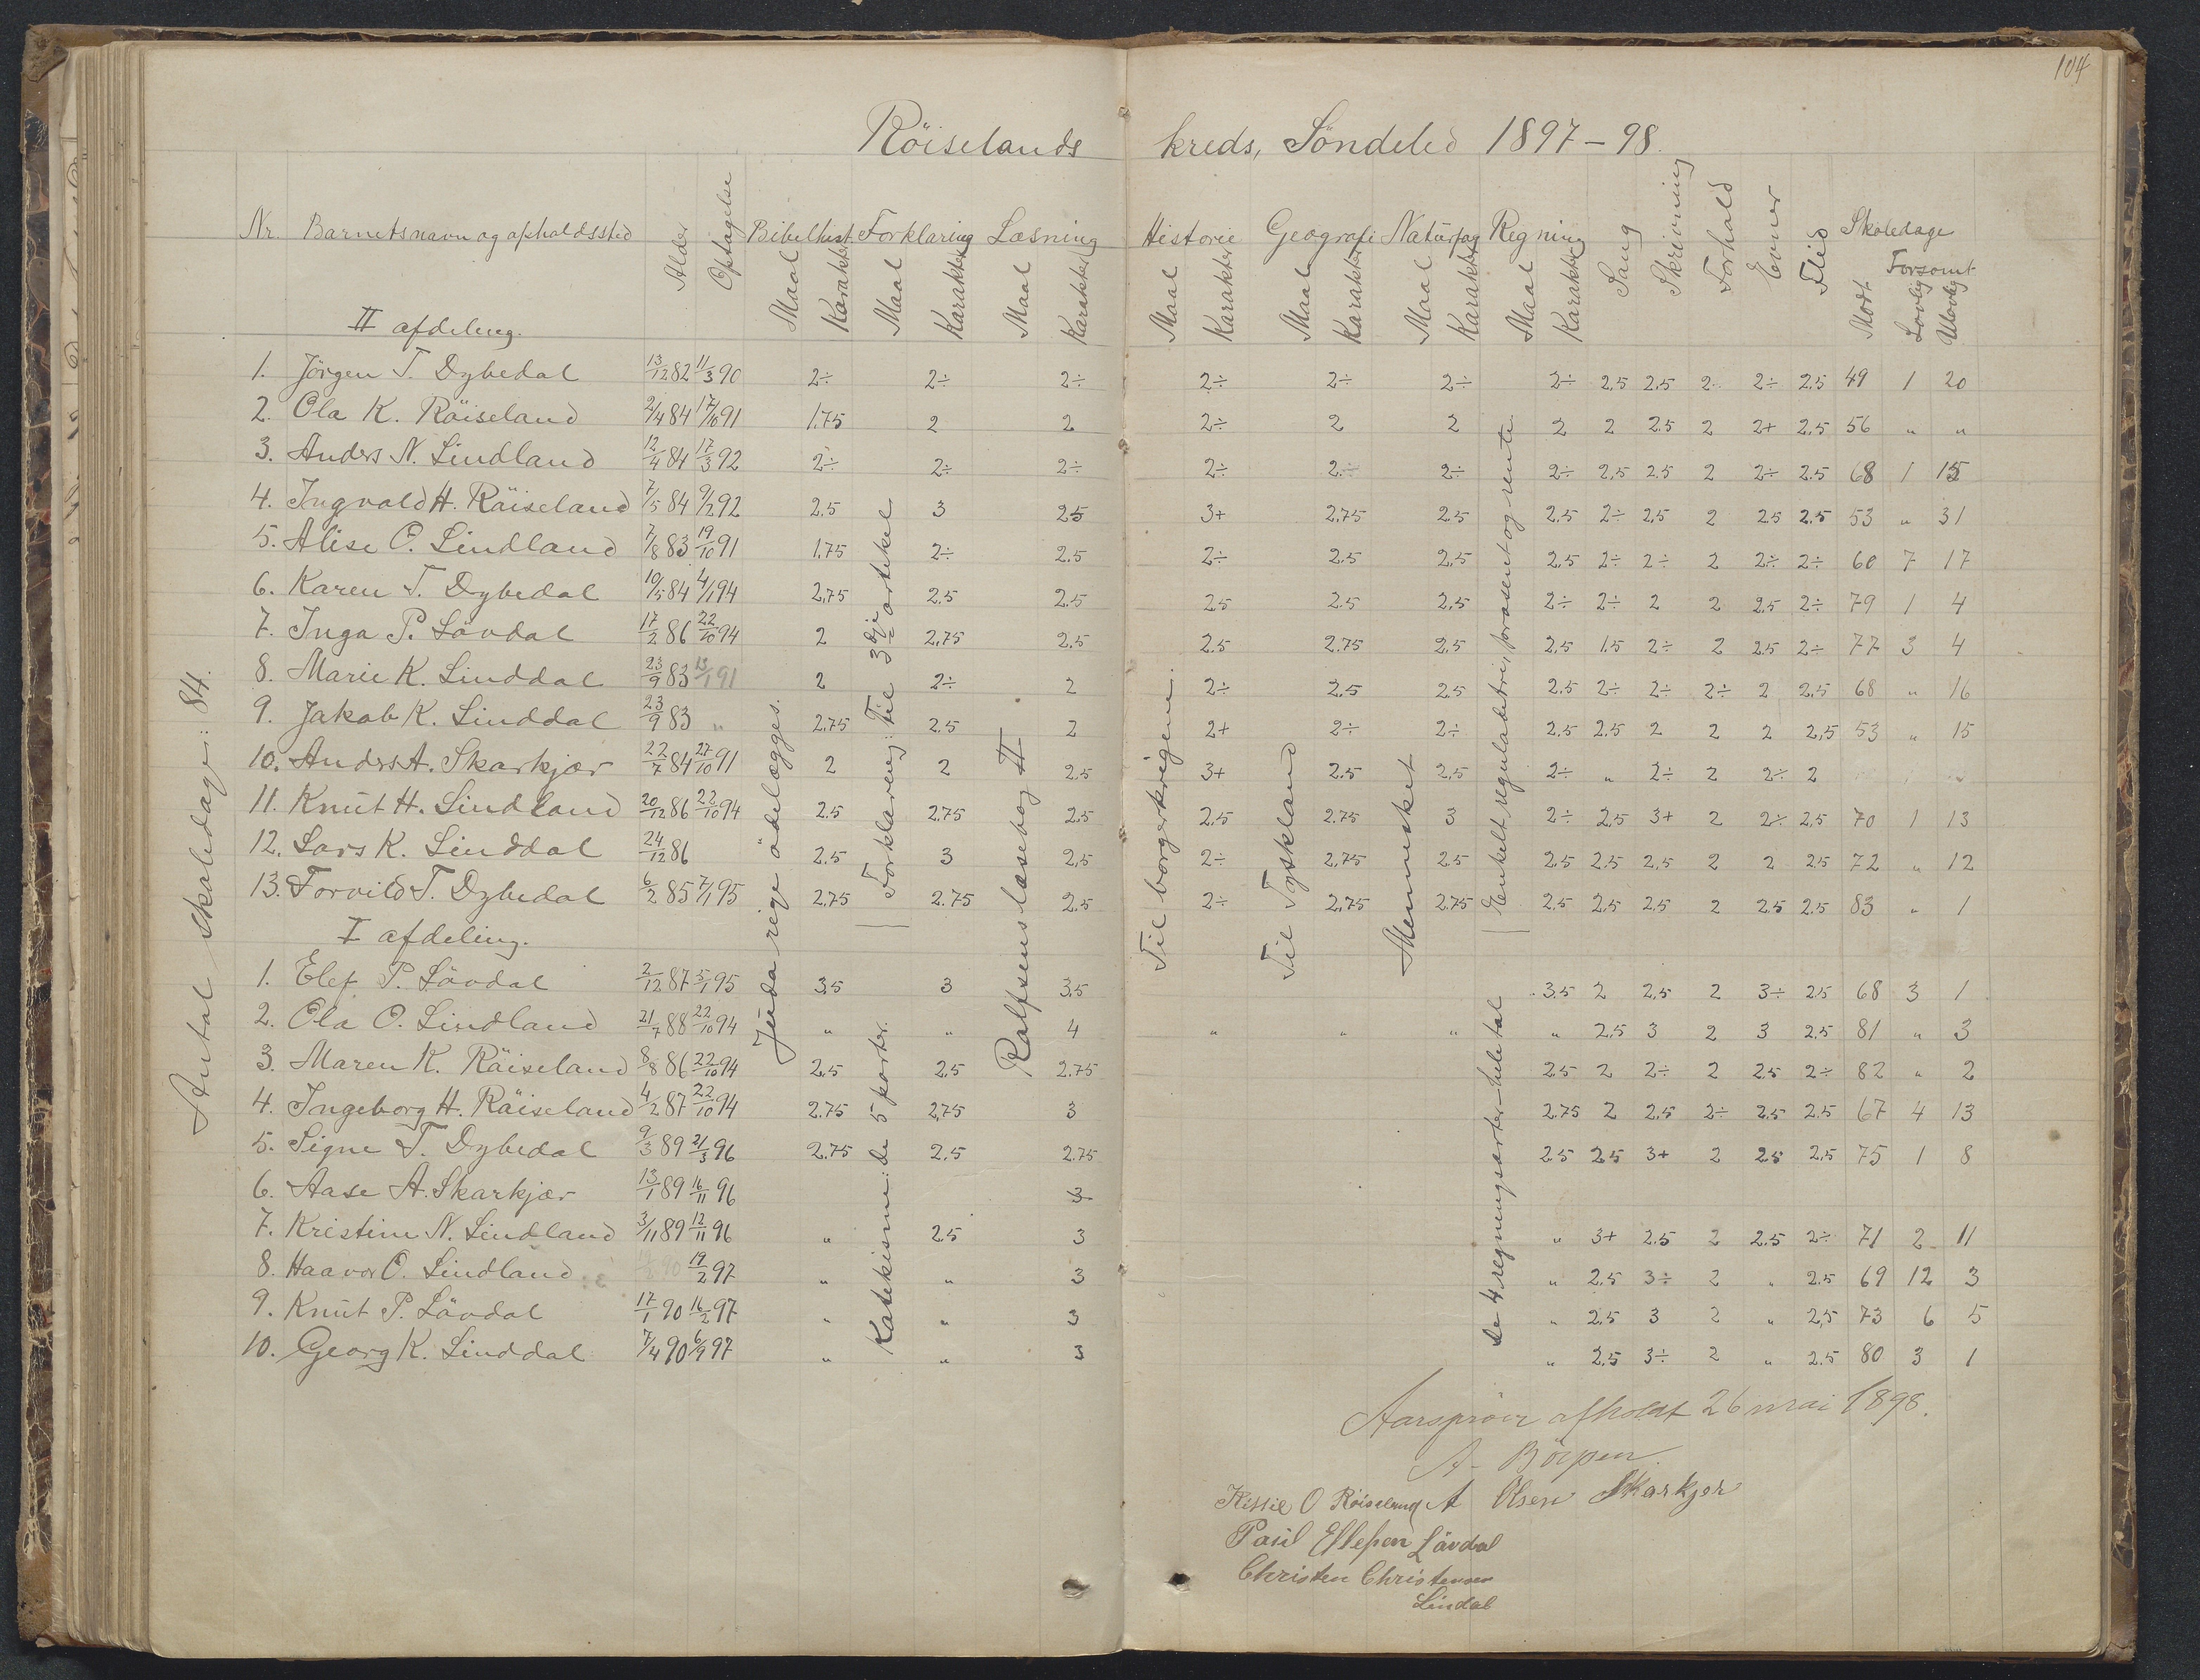 104
Röiselands kreds, Söndeled 1897-98.
Nr. Barnets navn og opholdssted Alder Optagelse Bibelhist. Forklaring Læsning Historie Geografi Naturfag Regning Sang Skrivning Forhold Evner Flid Skoledage
Maal Karakter Maal Karakter Maal Karakter Maal Karakter Maal Karakter Maal Karakter Maal Karakter Mødt Forsømt Lovlig Ulovlig
II afdeling.
1. Jörgen T. Dybedal 13/12 82 11/3 90 2÷ 2÷ 2÷ 2÷ 2÷ 2÷ 2÷ 2,5 2,5 2 2÷ 2.5 49 1 20
2. Ola K. Röiseland 2/4 84 17/10 91 1.75 2 2 2÷ 2 2 2 2 2.5 2 2+ 2.5 56 " "
3. Anders N. Lindland 12/4 84 17/3 92 2÷ 2÷ 2÷ 2÷ 2÷ 2÷ 2÷ 2,5 2.5 2 2÷ 2.5 68 1 15
4. Ingvald H. Röiseland 7/5 84 9/2 92 2.5 3 2.5 3+ 2.75 2.5 2.5 2÷ 2,5 2 2.5 2.5 53 " 31
5. Alise O. Lindland 7/8 83 19/10 91 1.75 2÷ 2.5 2÷ 2.5 2.5 2.5 2÷ 2÷ 2 2÷ 2÷ 60 7 17
6. Karen T. Dybedal 10/5 84 4/1 94 2,75 2.5 2.5 2.5 2.5 2,5 2÷ 2÷ 2 2 2.5 2÷ 79 1 4
7. Inga P. Lövdal 17/2 86 22/10 94 2 2,75 2.5 2.5 2.75 2.5 2,5 1.5 2÷ 2 2.5 2÷ 77 3 4
8. Marie K. Linddal 23/9 83 13/1 91 2 2÷ 2 2÷ 2.5 2.5 2.5 2÷ 2÷ 2÷ 2 2.5 68 " 16
9. Jakob K. Linddal 23/9 83 " 2.75 2.5 2 2+ 2÷ 2÷ 2.5 2.5 2 2 2 2,5 53 " 15
10. Anders A. Skarkjær 22/7 84 27/10 91 2 2 2.5 3+ 2.5 2,5 2÷ " 2÷ 2 2÷ 2
11. Knut H. Lindland 20/12 86 22/10 94 2.5 2.75 2.5 2.5 2.75 3 2÷ 2,5 3+ 2 2÷ 2,5 70 1 13
12. Lars K. Linddal 24/12 86 2.5 3 2,5 2÷ 2,75 2.5 2.5 2.5 2,5 2 2 2.5 72 " 12
13. Torvild T. Dybedal 6/2 85 7/1 95 2,75 2.75 2.5 2÷ 2,75 2.75 2.5 2.5 2,5 2 2.5 2.5 83 " 1
I afdeling.
1. Elef P. Lövdal 2/12 87 5/1 95 3,5 3 3,5 3.5 2 2,5 2 3÷ 2.5 68 3 1
2. Ola O. Lindland 21/7 88 22/10 94 " " 4 " " " " 2.5 3 2 3 2.5 81 " 3
3. Maren K. Röiseland 8/8 86 22/10 94 2.5 2.5 2.75 2.5 2 2÷ 2 2.5 2÷ 82 " 2
4. Ingeborg H. Röiseland 4/2 87 22/10 94 2.75 2,75 3 2.75 2 2,5 2÷ 2.5 2.5 67 4 13
5. Signe T. Dybedal 9/3 89 21/3 96 2.75 2.5 2.75 2.5 2.5 3+ 2 2.5 2,5 75 1 8
6. Aase A. Skarkjær 13/1 89 16/11 96 3
7. Kristine N. Lindland 3/11 89 12/11 96 " 2.5 3 " 3+ 2.5 2 2.5 2÷ 71 2 11
8. Haavor O. Lindland 19/2 97 " " 3 " 2.5 3÷ 2 " 2.5 69 12 3
9. Knut P. Lövdal 17/1 90 16/2 97 " " 3 " 2.5 3 2 " 2,5 73 6 5
10. Georg K. Linddal 7/4 90 6/9 97 " " 3 " 2.5 3÷ 2 " 2.5 80 3 1
Antal skoledage: 84.
Juda rige ödelægges.
Forklaring: Til 3dje artikel
Katekisme: de 5 parter.
Rolfsens læsebog II
Til borgerkrigene.
Til Tyskland
Mennesket
Enkelt reguladetri, prosent og rente
De 4 regningsarter hele tal
Aarspröve afholdt 26 mai 1898.
A. Börpen.
Kittil O Röiseland A Olsen Skarkjær
Paul Ellefsen Lövdal
Christen Christensen
Lindal